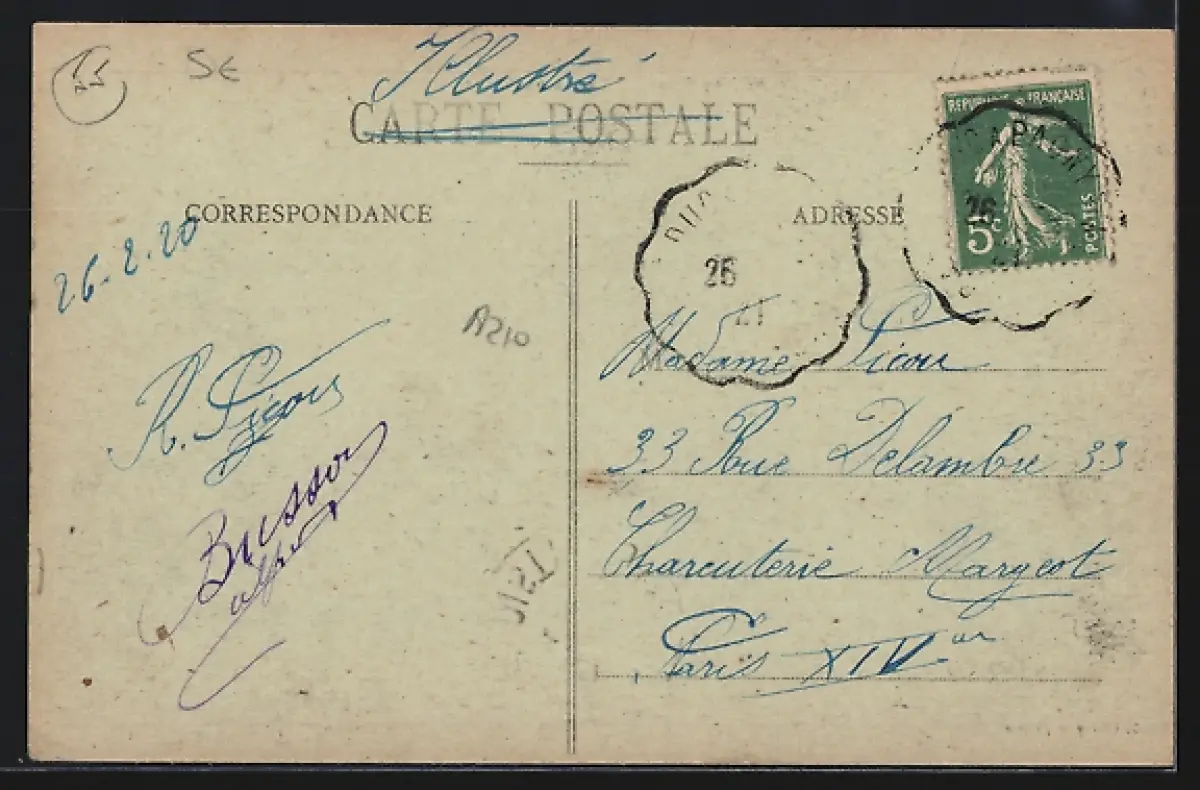 55
SE
Illustré
CARTE POSTALE
REPUBLIQUE FRANÇAISE
26
5c
POSTES
CORRESPONDANCE
ADRESSE
26.2.20
26
21
A210
Madame Picou
R. Picou
33 Rue Delambre 33
Charcuterie Margeot
Paris XIVe
Busson